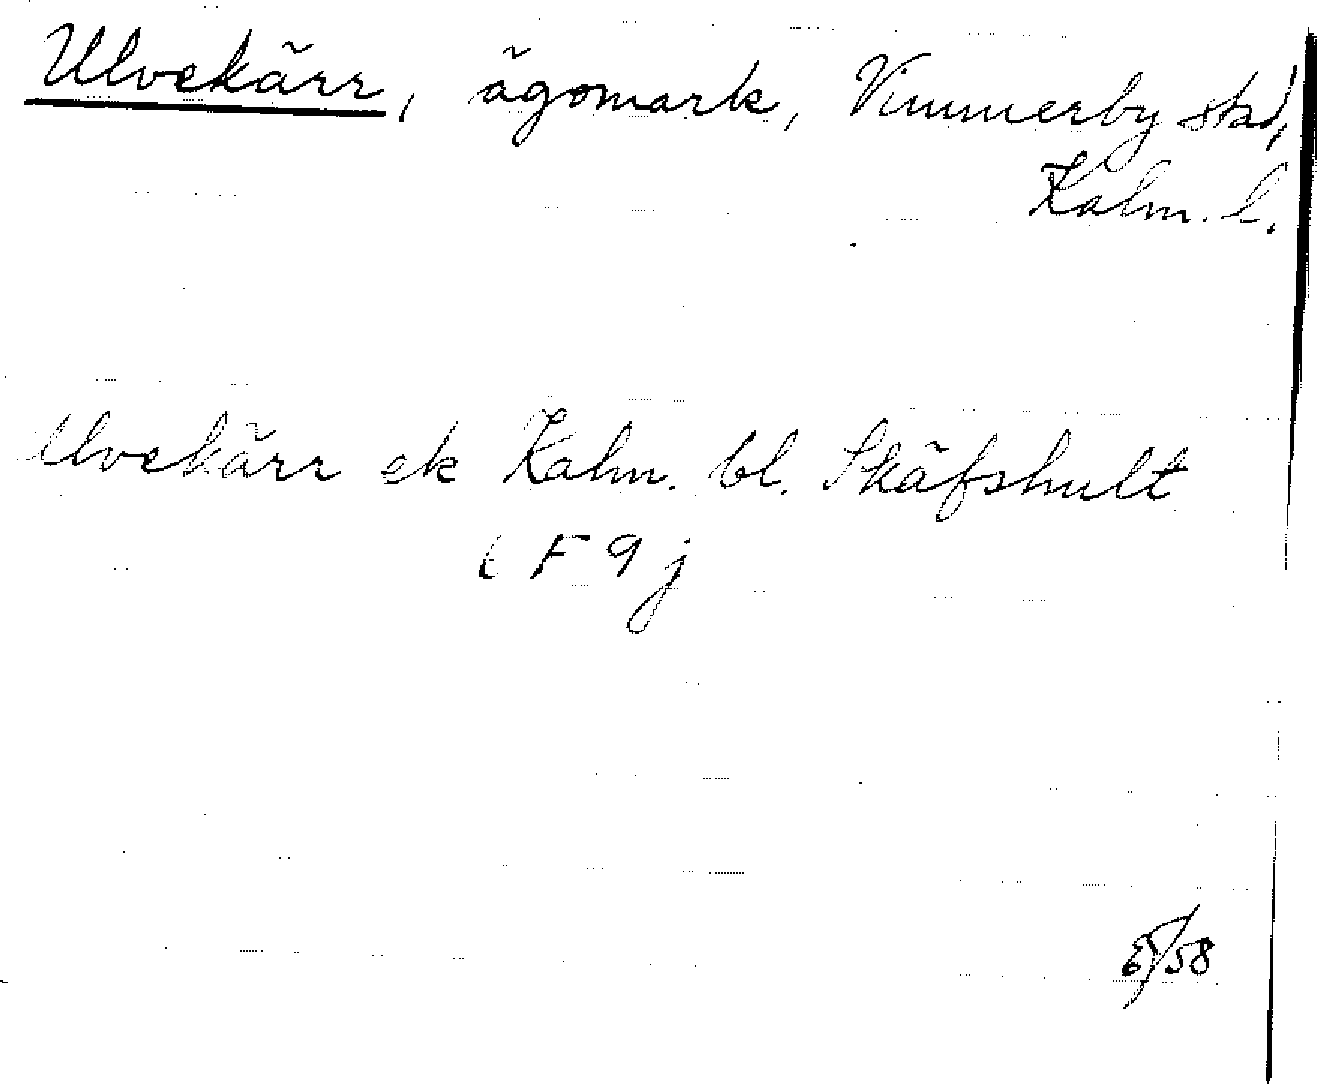 Ulvekärr, ägomark, Vimmerby stad,
Kalm. l.
Ulvekärr ek Kalm. bl. Skäfshult
6 F 9 j
/58